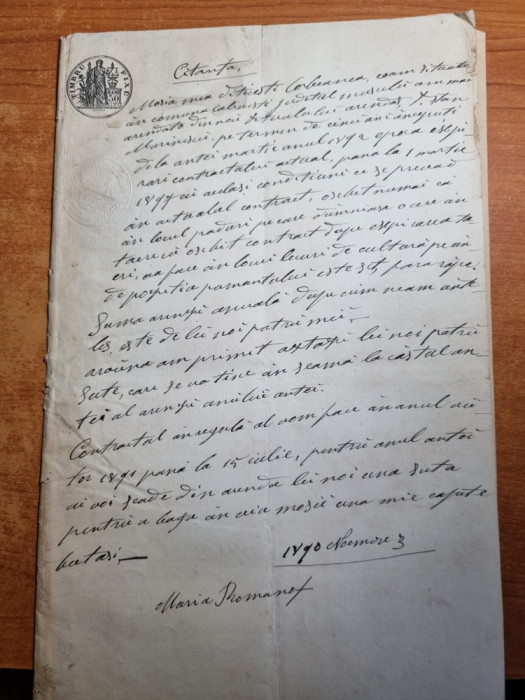 TIMBRU FIX
Citanța,
Moșia mea Dițești Corbeanca, ce am situată
în comuna Călinești județul am mai
arendato din noi Dtualui arendaș, D. Stan
Marinescu, pe termen de cinci ani începuți
dela antei martie anul 1892 epoca espi-
rari contractului actual, pana la 1 martie
1897 cu aclași condițiuni ce se prevad
în actualul contract, osebit numai că
în locul păduri pe care o în
osebit contract după espirarea ta-
eri, va face în locui locuri de cultură pe
de poziția pamantului este
Suma arenzi anuala dupe cum neam
les, este de lei noi patru mii,
arvuna am primit astăzi lei noi patru
sute, care se va tine în seamă la câstul an-
tei al arenzi anului antei.
Contractul în regulă al vom face în anul vii-
tor 1891 pană la 15 iulie, pentru anul antei
ai voi scade din arenda lei noi una suta
pentru a baga în mosii una mie capete
1890 Noemvre 3
Maria Romanof